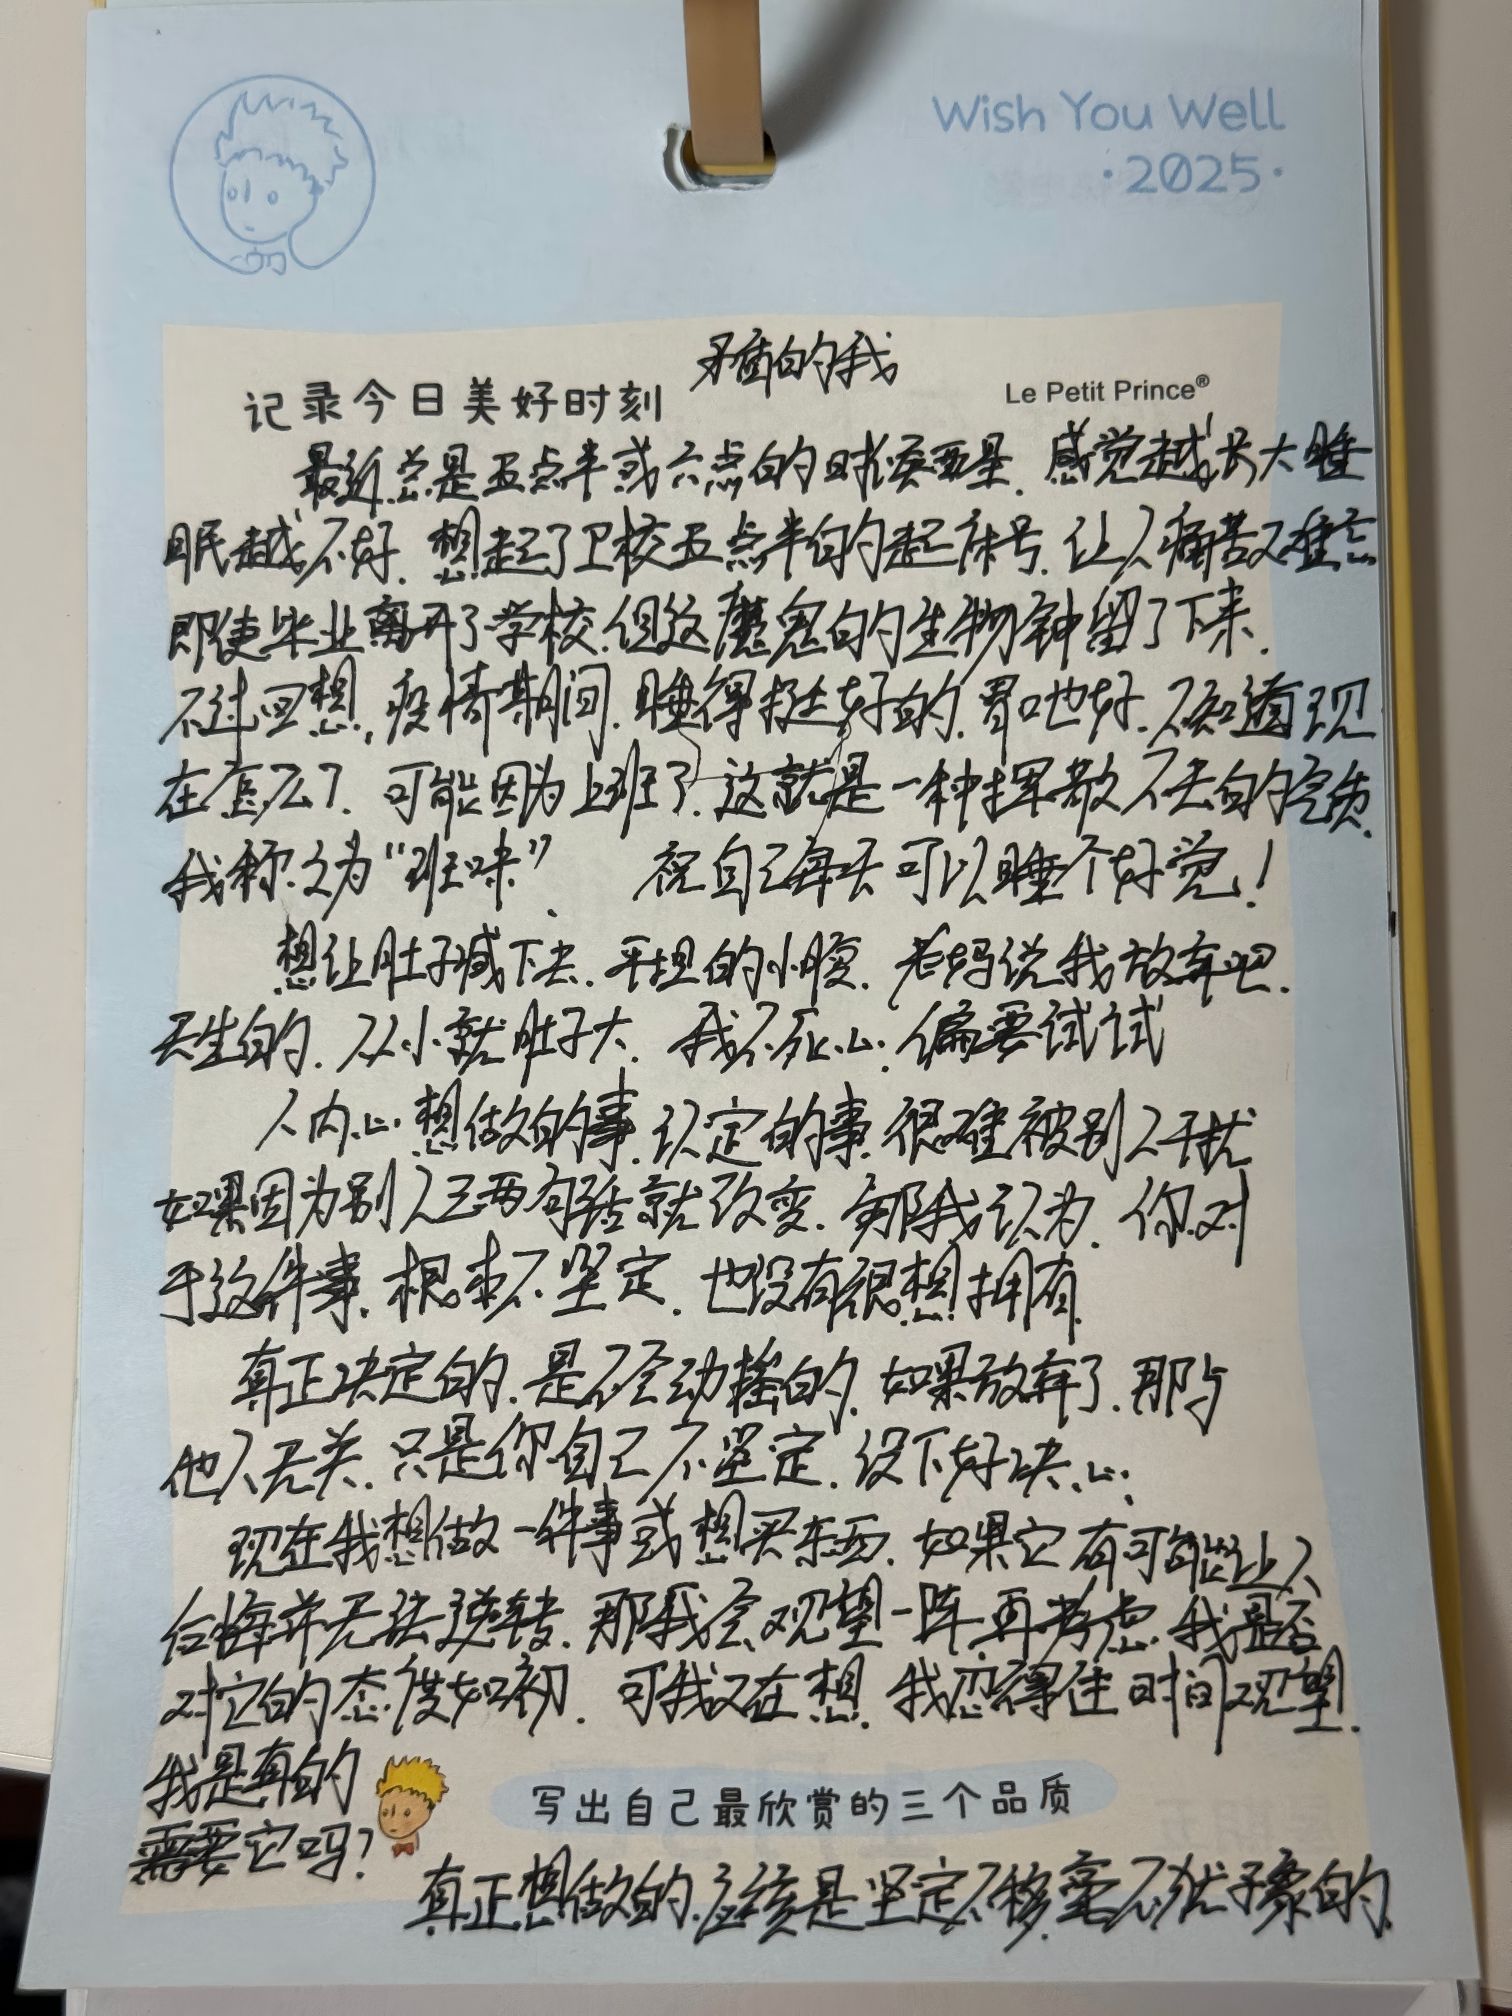 Wish You Well
·2025·
矛盾的我
记录今日美好时刻
Le Petit Prince®
最近总是五点半或六点的时候要醒. 感觉越长大睡
眠越不好. 想起了卫校五点半的起床号. 让人痛苦又难忘
即使毕业离开了学校. 但这魔鬼的生物钟留了下来.
不过回想, 疫情期间. 睡得挺好的. 胃口也好. 不知道现
在怎么了. 可能因为上班了. 这就是一种挥散不去的气质.
我称之为“班味”. 祝自己每天可以睡个好觉!
想让肚子减下去. 平坦的小腹. 老妈说我放弃吧.
天生的. 从小就肚子大. 我不死心. 偏要试试
人内心想做的事. 认定的事. 很难被别人干扰
如果因为别人三两句话就改变. 那我认为. 你对
于这件事. 根本不坚定. 也没有很想拥有.
真正决定的. 是不会动摇的. 如果放弃了. 那与
他人无关. 只是你自己不坚定. 没下好决心.
现在我想做一件事或想买东西. 如果它有可能让人
后悔并无法逆转. 那我会观望一阵. 再考虑. 我是否
对它的态度如初. 可我又在想. 我忍得住时间观望.
我是真的
需要它吗?
写出自己最欣赏的三个品质
真正想做的. 应该是坚定不移. 毫不犹豫的.